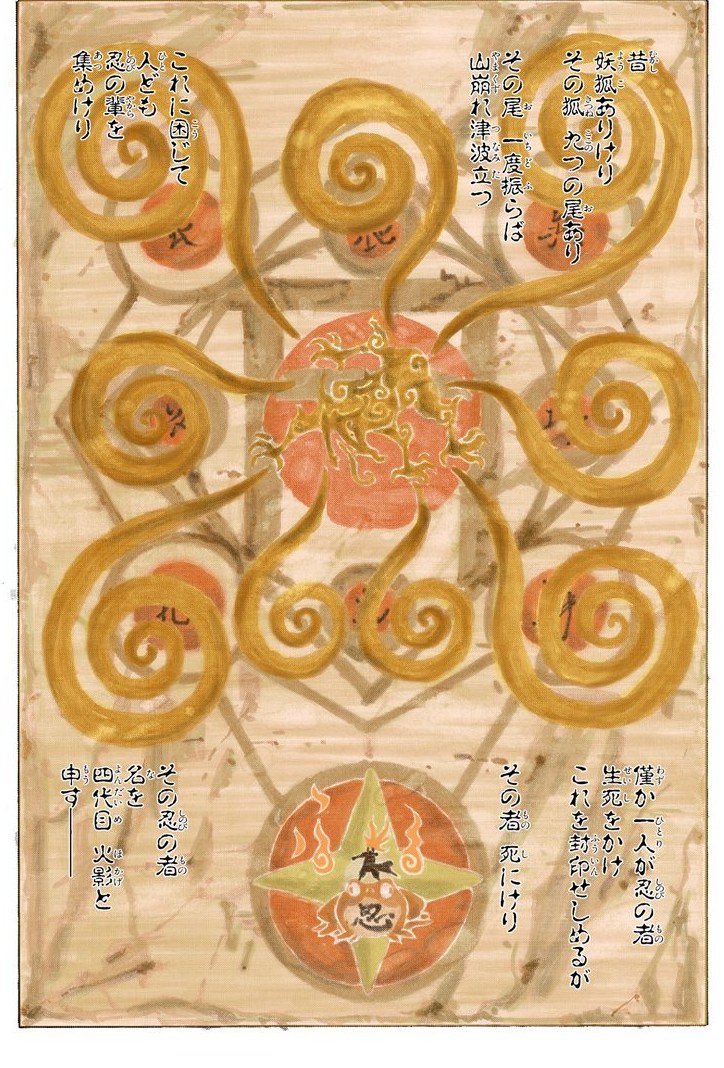 昔
妖狐ありけり
その狐 九つの尾あり
その尾 一度振らば
山崩れ津波立つ
これに困じて
人ども
忍の輩を
集めけり
僅か一人が忍の者
生死をかけ
これを封印せしめるが
その者 死にけり
その忍の者
名を
四代目 火影と
申す――
忍